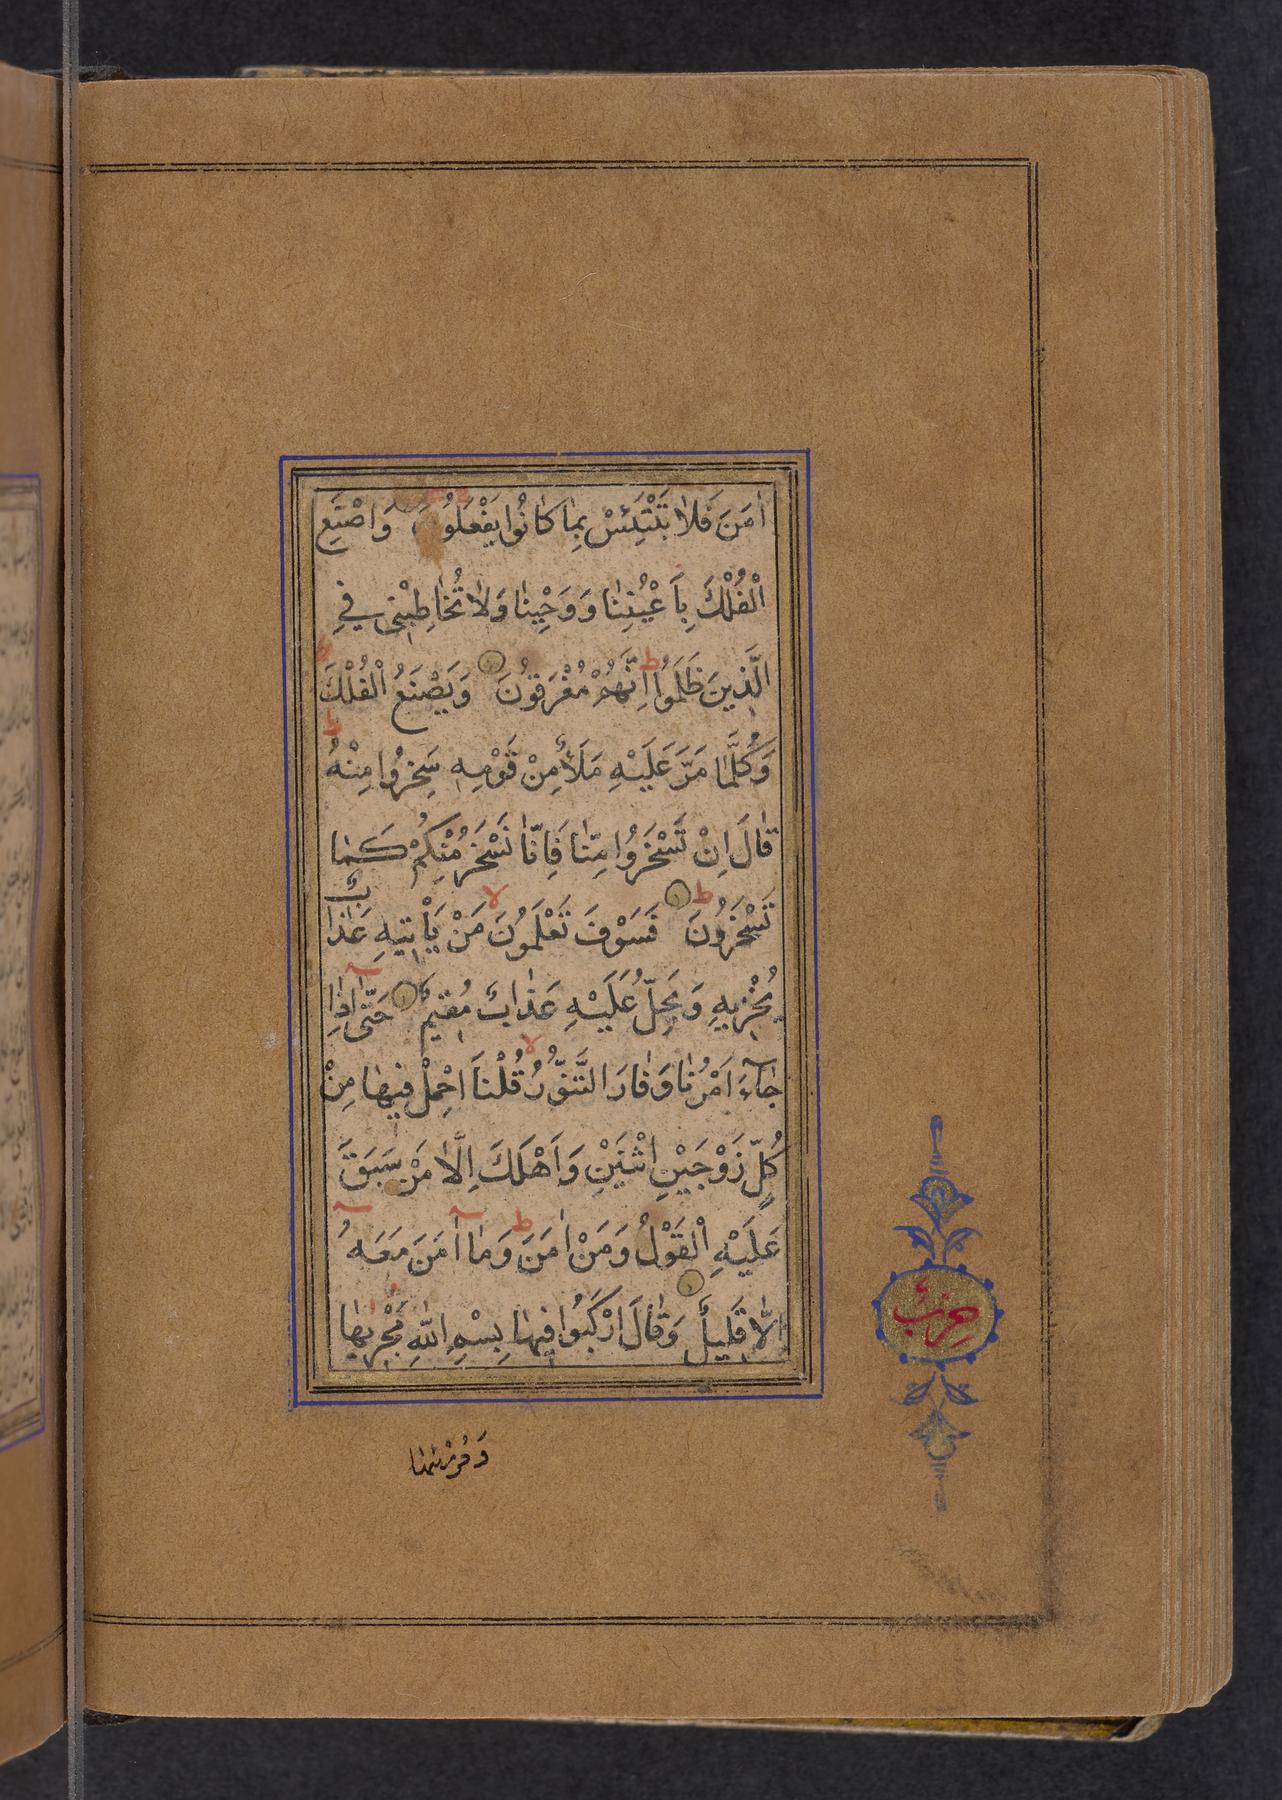 اٰمَنَ فَلٰا تَبْتَئِسْ بِمٰا كٰانُوا يَفْعَلُونَ وَاصْنَعِ
الْفُلْكَ بِاَعْيُنِنٰا وَوَحْيِنٰا وَلٰا تُخٰاطِبْنِى فِى
الَّذِينَ ظَلَمُوا اِنَّهُمْ مُغْرَقُونَ وَيَصْنَعُ الْفُلْكَ
وَكُلَّمٰا مَرَّ عَلَيْهِ مَلَأٌ مِنْ قَوْمِهِ سَخِرُوا مِنْهُ
قٰالَ اِنْ تَسْخَرُوا مِنّٰا فَاِنّٰا نَسْخَرُ مِنْكُمْ كَمٰا
تَسْخَرُونَ فَسَوْفَ تَعْلَمُونَ مَنْ يَأْتِيهِ عَذٰابٌ
يُخْزِيهِ وَيَحِلُّ عَلَيْهِ عَذٰابٌ مُقِيمٌ حَتّٰى اِذٰا
جٰآءَ اَمْرُنٰا وَفٰارَ التَّنُّورُ قُلْنَا احْمِلْ فِيهٰا مِنْ
كُلٍّ زَوْجَيْنِ اثْنَيْنِ وَاَهْلَكَ اِلّٰا مَنْ سَبَقَ
عَلَيْهِ الْقَوْلُ وَمَنْ اٰمَنَ وَمٰا اٰمَنَ مَعَهُ
اِلّٰا قَلِيلٌ وَقٰالَ ارْكَبُوا فِيهٰا بِسْمِ اللّٰهِ مَجْرٖىهٰا
حزب
وَمُرْسٰىهٰا